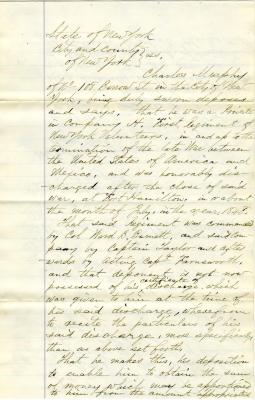 State of New York
City and County } ss.
of New York
Charles Murphy
of No 108 Barrow St. in the City of New
York, being duly sworn deposes
and says, that he was a Private
in Company H. First Regiment of
New York Volunteers, in and up to the
termination of the late War between
the United States of America and
Mexico, and was honorably dis-
charged after the close of said
war, at Fort Hamilton, in or about
the month of July, in the year, 1848.
That said Regiment was commanded
by Col Ward B. Burnett, and said Com-
pany by Captain Taylor and after
wards by acting Capt Farnsworth,
and that deponent is not now
possessed of his certificate of discharge which
was given to him at the time of
his said discharge, wherefrom
to recite the particulars of his
said discharge, more specifically
than as above set forth.
That he makes this, his deposition
to enable him to obtain the sum
of money which may be apportioned
to him from the amount appropriated